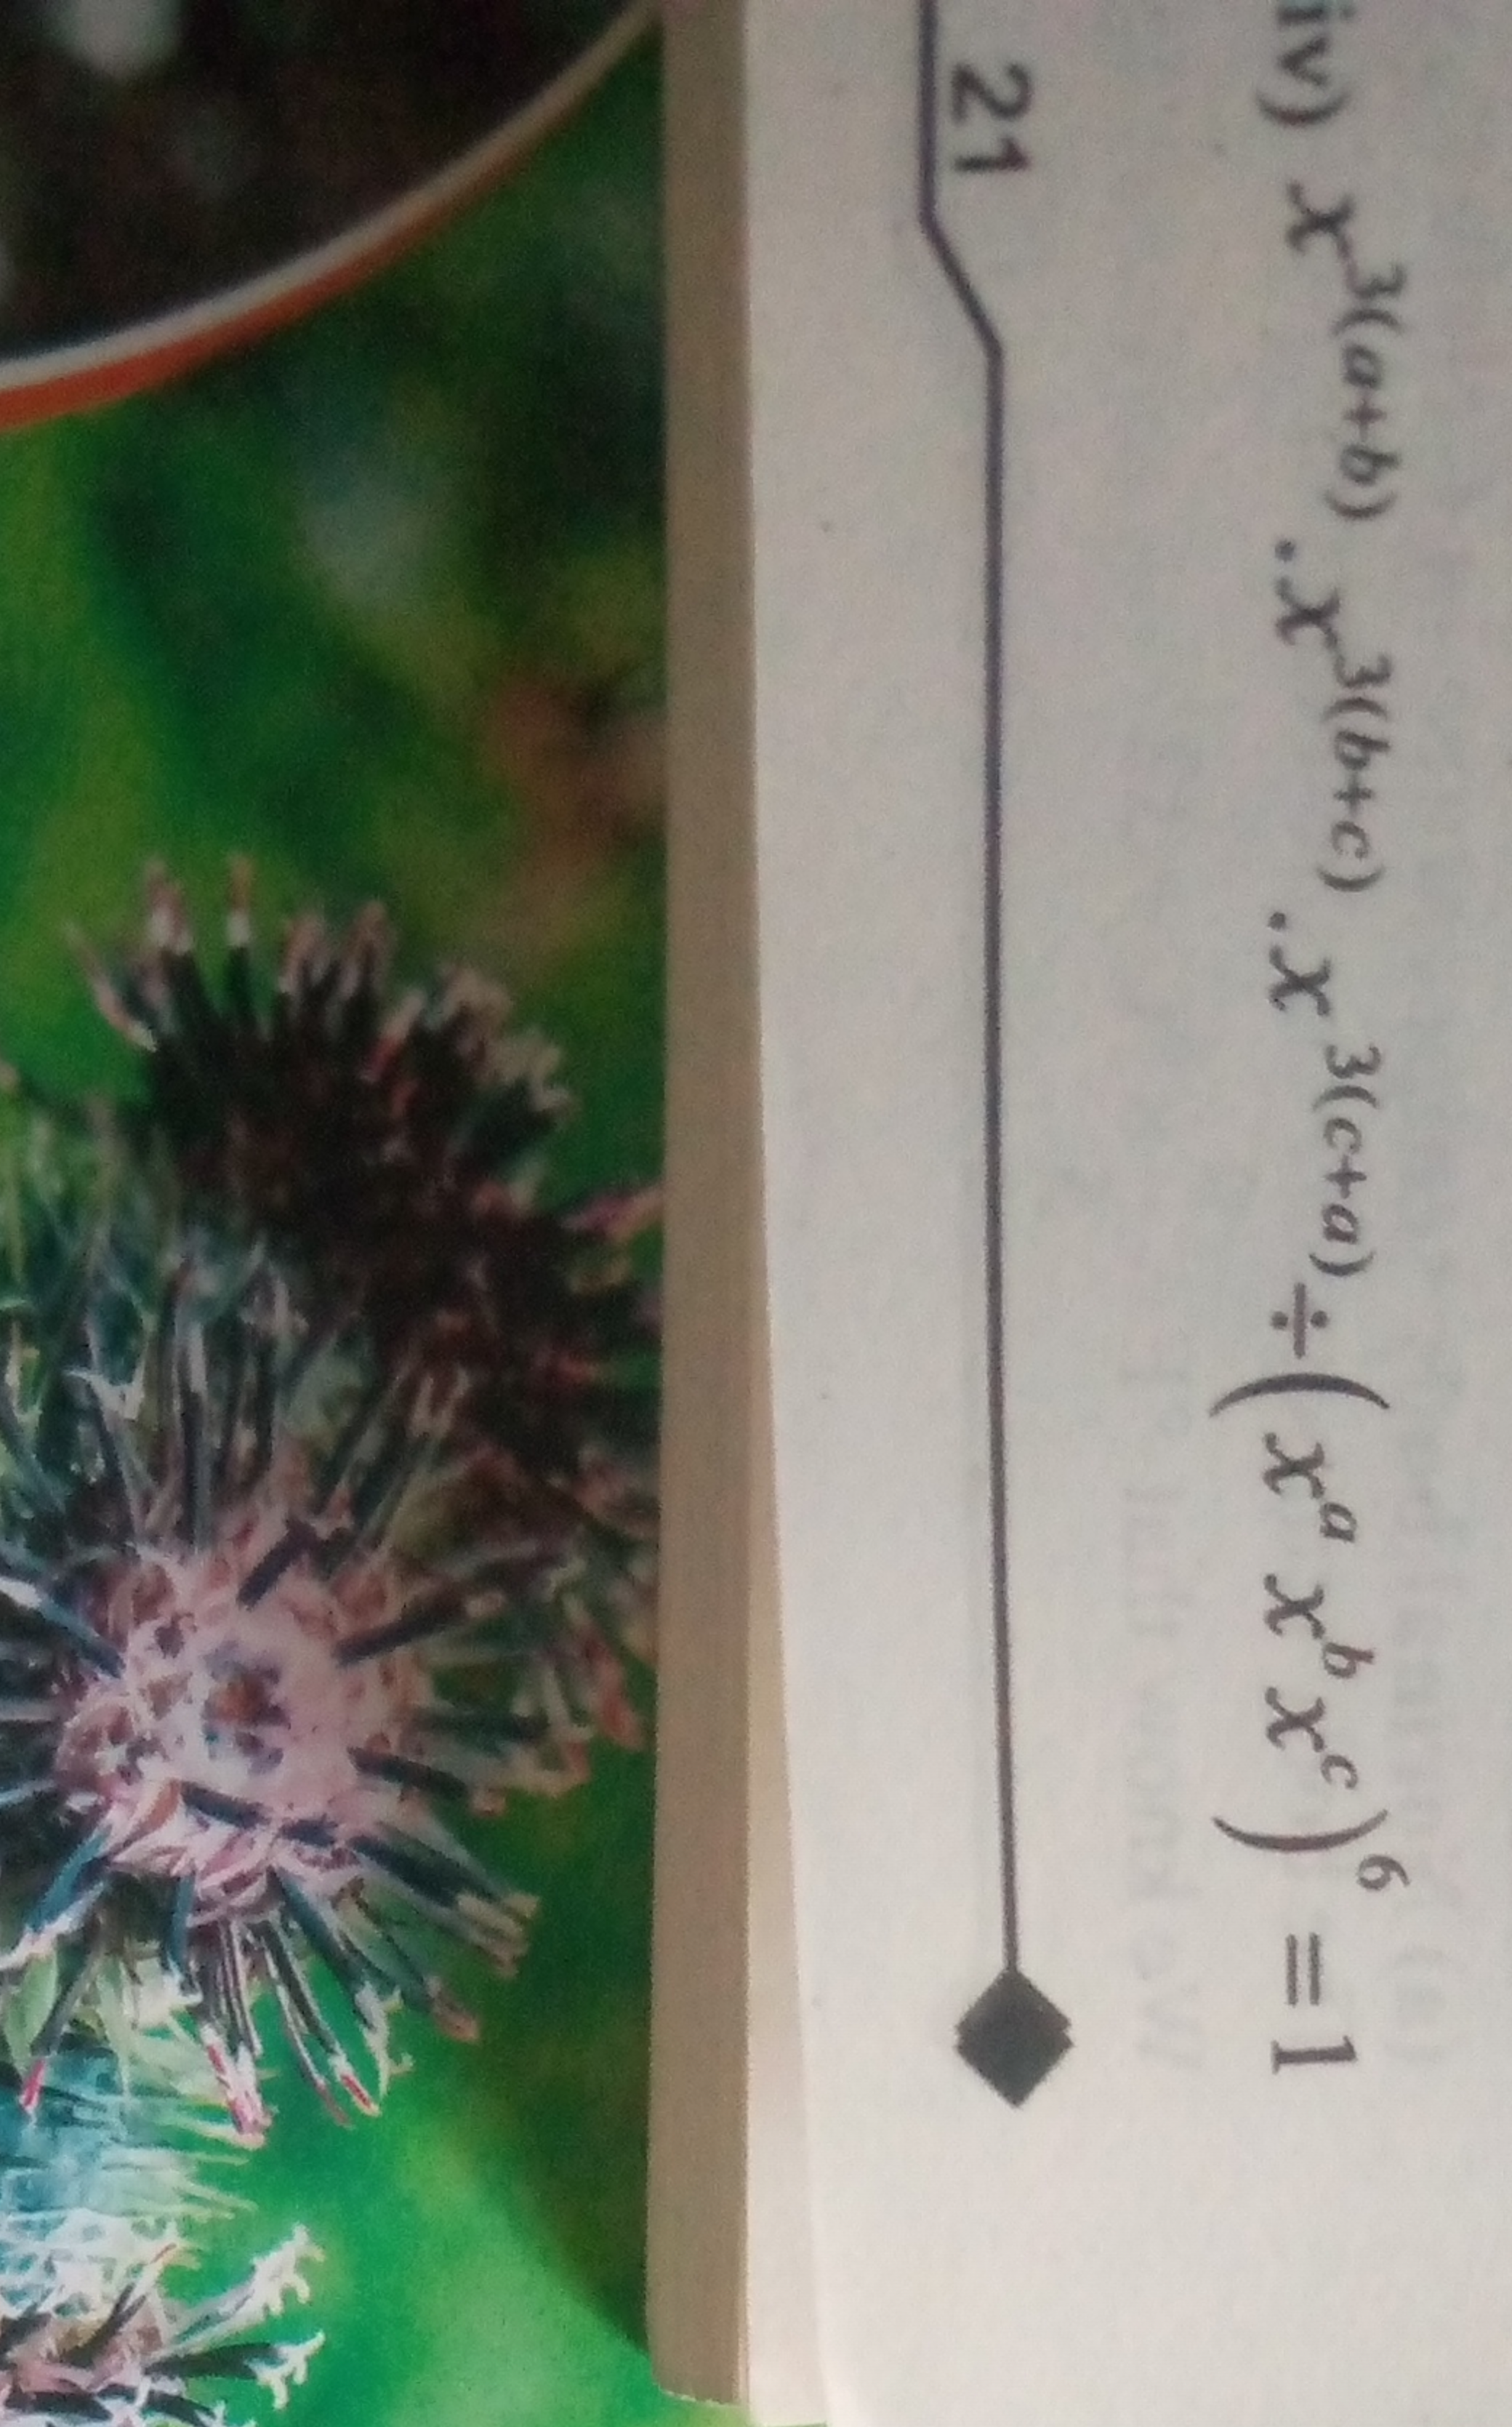 iv) x^{3(a+b)} . x^{3(b+c)} . x^{3(c+a)} ÷ (x^a x^b x^c)^6 = 1
21